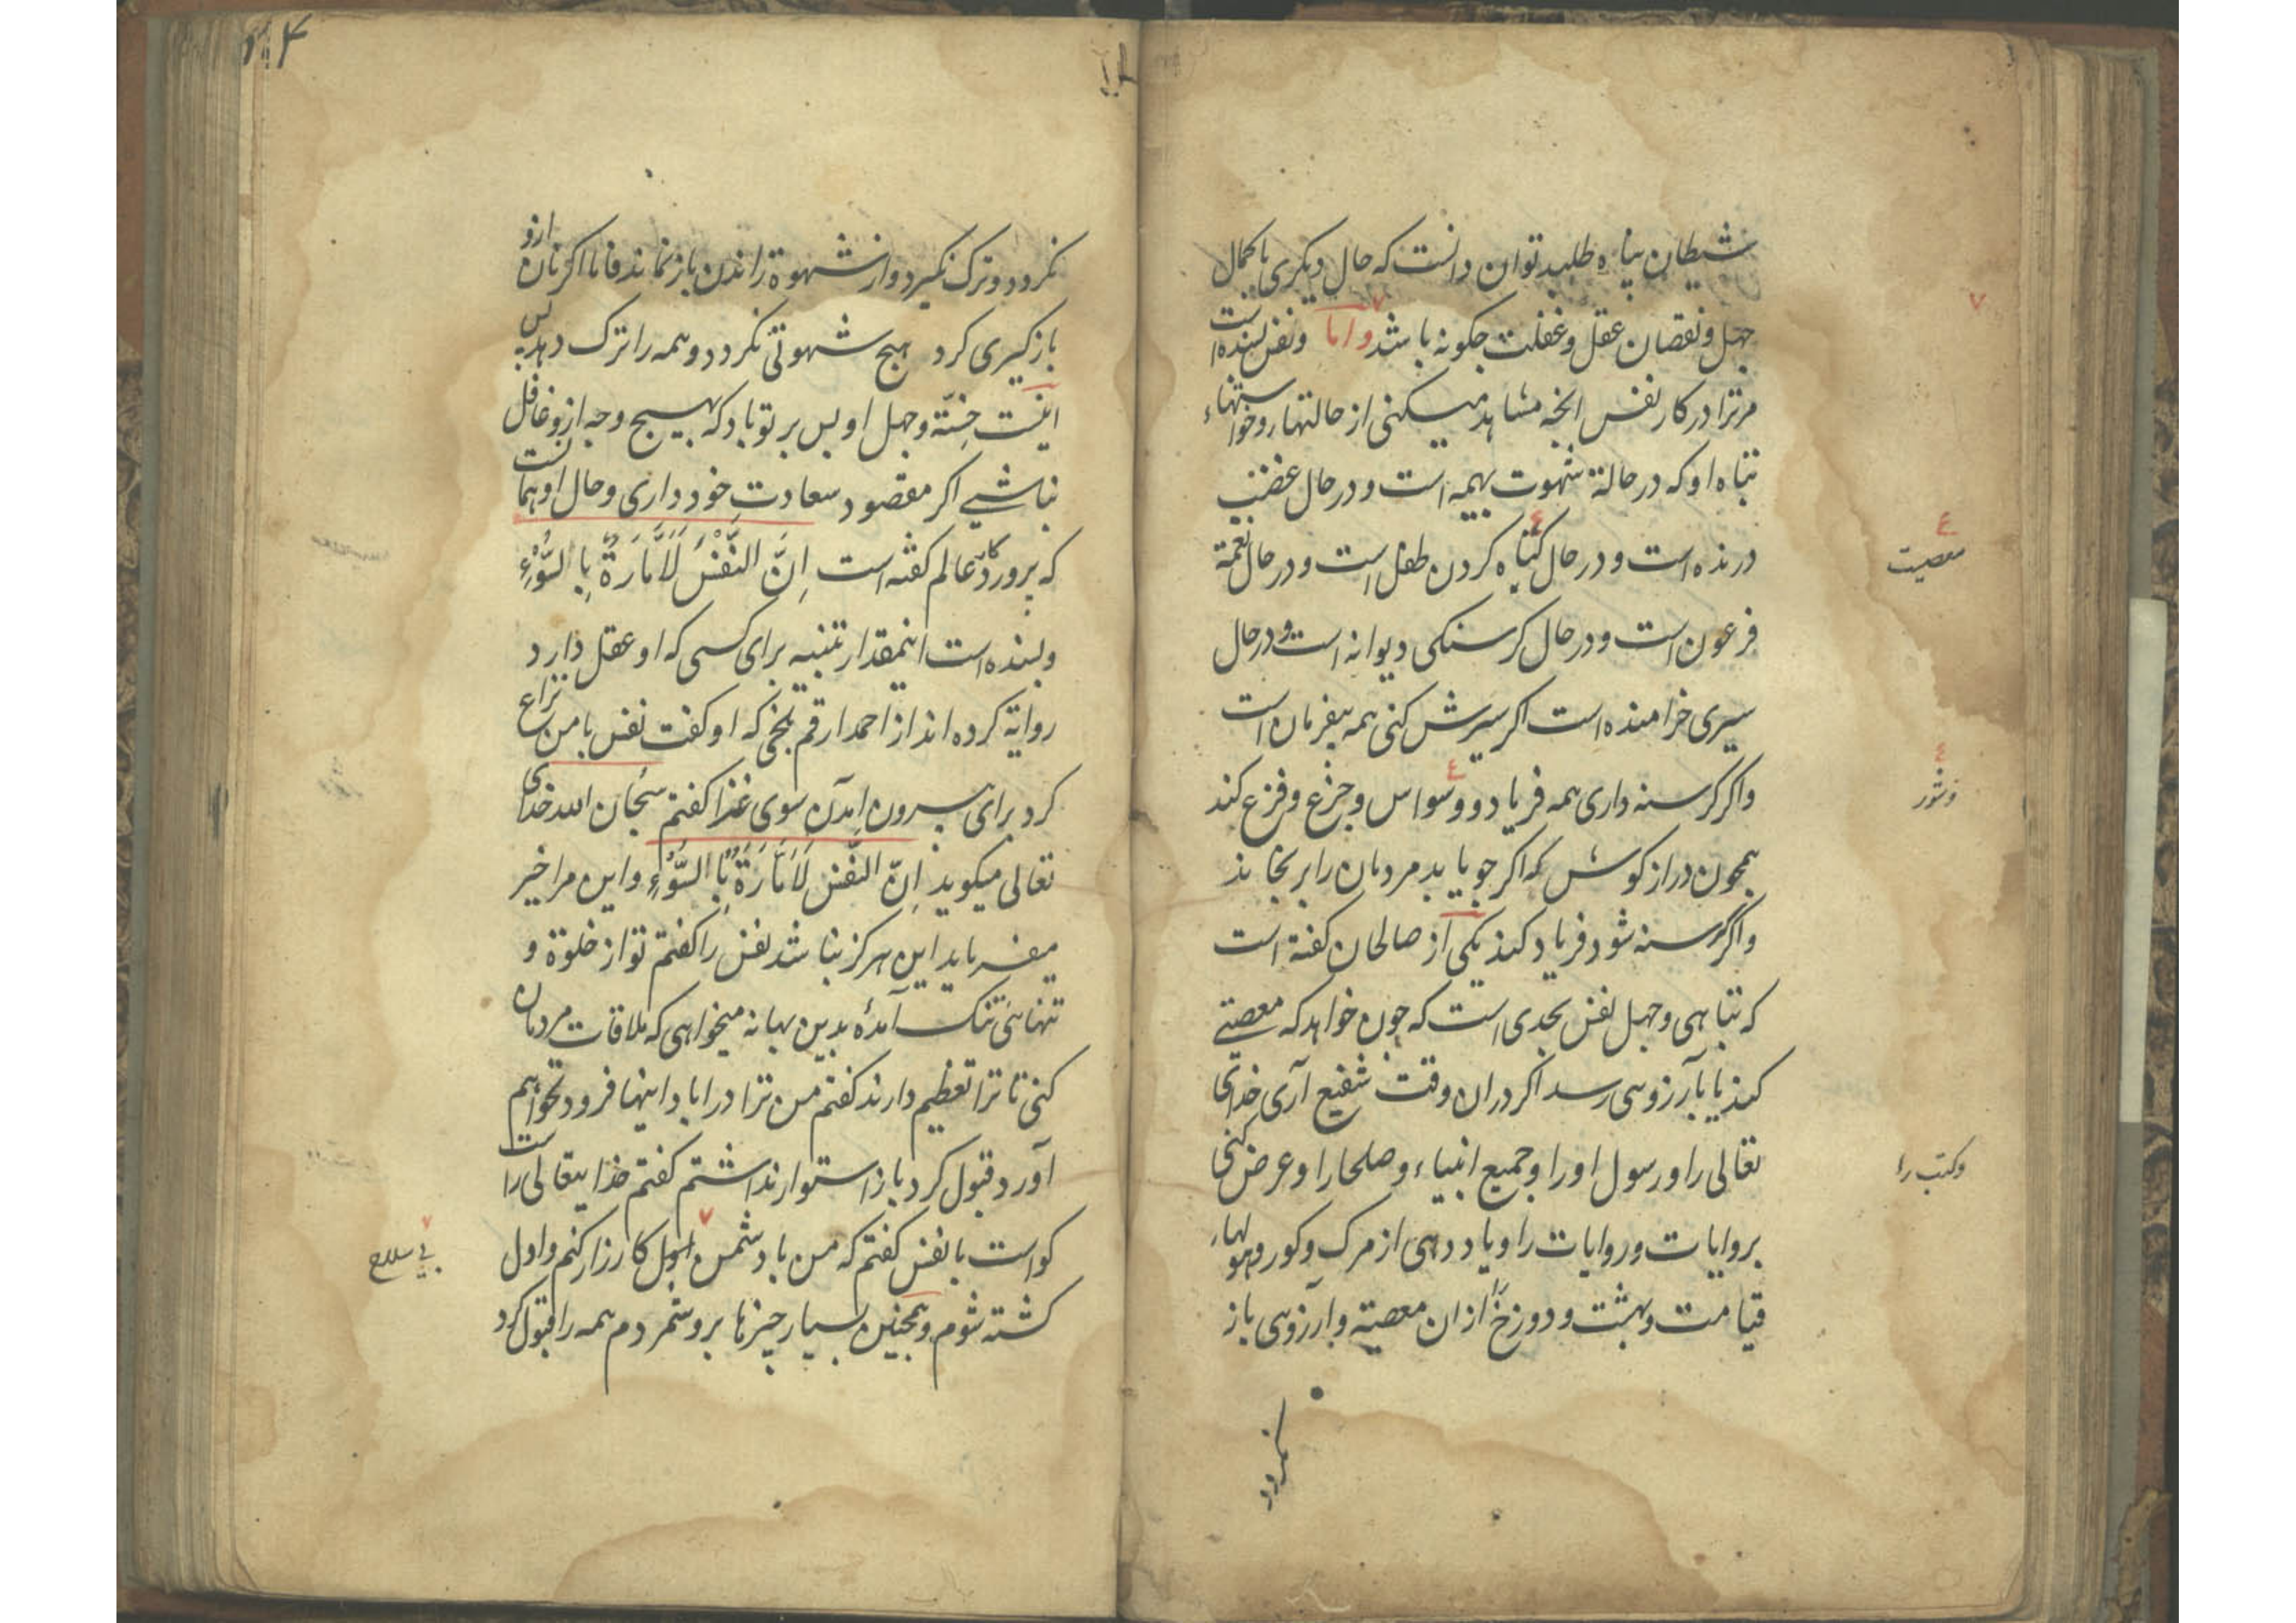 شیطان پناه طلبد توان دانست که حال دیگری با کمال
جهل و نقصان عقل و غفلت چکونه باشد واما و نفس بسنده است
مرترا در کار نفس انچه مشاهد میکنی از حالتها رو خواستنهاء
تباه او که در حالة شهوت بهیمه است و در حال غضب
درنده است و در حال کناه کردن طفل است و در حال نعمة
فرعون است و در حال کرسنکی دیوانه است و در حال
سیری خرامنده است اکر سیرش کنی همه بیفرمان است
واکر کرسنه داری همه فریاد و وسواس و جزع و فزع کند
همچون دراز کوش که اکر جو یابد مردمان را برنجاند
واکر کرسنه شود فریاد کند یکی از صالحان کفته است
که تباهی و جهل نفس بحدی است که چون خواهد که معصیتے
کند یا بآرزوی رسد اکر دران وقت شفیع آری خدای
تعالی را و رسول او را و جمیع انبیاء و صلحا را و عرض کنی
بروایات و روایات را و یاد دهی از مرک و کور و هولهاء
قیامت و بهشت و دوزخ از ان معصیة و آرزوی باز
نکردد
معصیت
و شور
و کتب را
نکردد و ترک نکیرد و از شهوة راندن باز نماند فاما اکر نان ازو
باز کیری کرد هیچ شهوتی نکردد و همه را ترک دهد پس
اینست خسّة و جهل او پس بر تو باد که بهیچ وجه ازو غافل
نباشے اکر مقصود سعادت خود داری و حال او همانست
که پروردکار عالم کفته است اِنَّ النَّفْسَ لَاَمَّارَةٌ بِالسُّوْءِ
و بسنده است اینمقدار تنبیه برای کسی که او عقل دارد
روایة کرده اند از احمد ارقم بلخی که او کفت نفس با من نزاع
کرد برای بیرون امدن سوی غذا کفتم سبحان الله خدای
تعالی میکوید اِنَّ النَّفْسَ لَاَمَّارَةٌ بِالسُّوْءِ و این مرا خیر
میفرماید این هرکز نباشد نفس را کفتم تو از خلوة و
تنهائی تنک آمدۀ بدین بهانه میخواهی که ملاقات مردمان
کنی تا ترا تعظیم دارند کفتم من ترا در ابادانیها فرود نخواهم
آورد قبول کرد باز استوار نداشتم کفتم خدایتعالی راست
کواست با نفس کفتم که من با دشمن اول کارزار کنم و اول
کشته شوم و همچنین بسیار چیزها برو شمردم همه را قبول کرد
بی سلاح